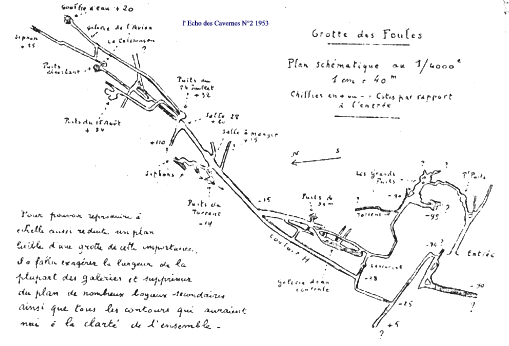 l'Echo des Cavernes N°2 1953
Grotte des Foules
Plan schématique au 1/4000e
1 cm = 40 m
Chiffres en + ou - : Cotes par rapport
à l'entrée
Gouffre d'eau + 20
Galerie de l'Avion
Le Colimaçon
Siphon
+ 25
Puits
Puits du
14 Juillet
+ 32
Puits du 15 Août
+ 34
Salle 28
Salle à manger
+ 15
+110 ?
Siphons
N S
Puits du
Torrent
- 14
- 15
Puits de
Les Grands
Puits
Torrent
- 95
?
Entrée
- 28
Galerie d'eau
courante
- 25
+ 5
?
Pour pouvoir reproduire à
échelle aussi réduite un plan
lisible d'une grotte de cette importance
il a fallu exagérer la largeur de la
plupart des galeries et supprimer
du plan de nombreux boyaux secondaires
ainsi que tous les contours qui auraient
nui à la clarté de l'ensemble -